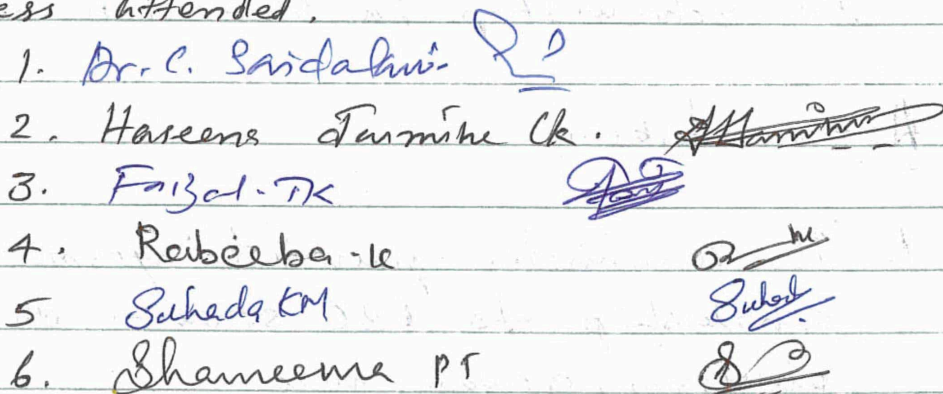 ess attended.
1. Dr. C. Saidalavi
2. Haseena Jasmine Ck.
3. Faizal-TK
4. Rabeeba-K
5 Suhada KM Suhad
6. Shameema PT